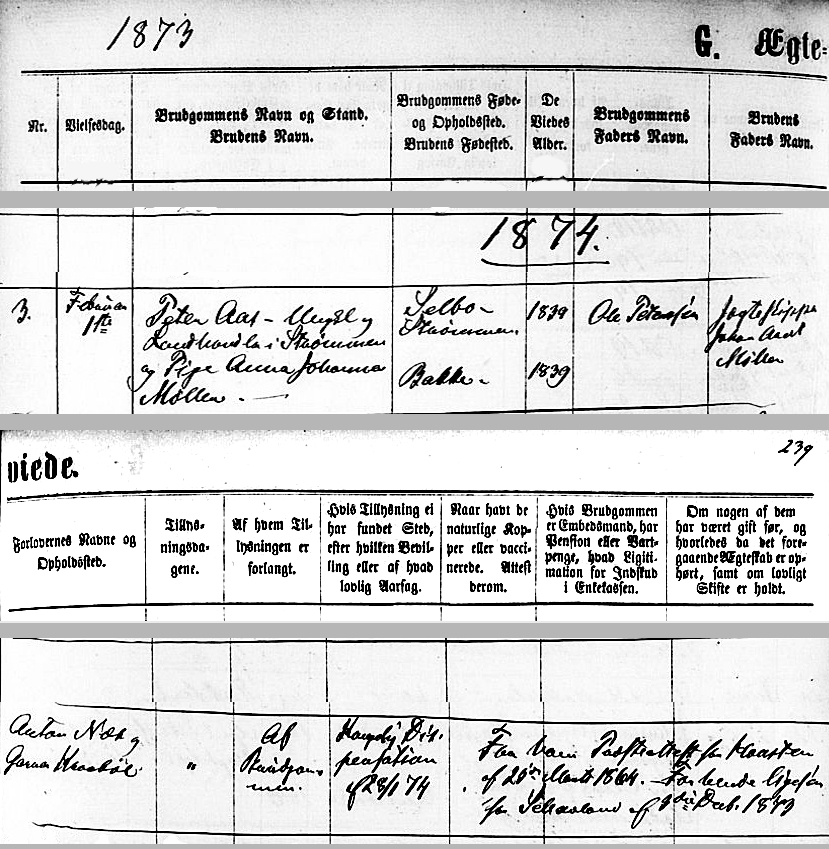 1873
G. Ægte-
Nr.
Vielsesdag.
Brudgommens Navn og Stand.
Brudens Navn.
Brudgommens Føde-
og Opholdssted.
Brudens Fødested.
De
Viedes
Alder.
Brudgommens
Faders Navn.
Brudens
Faders Navn.
1874.
3.
Februar
1ste
Peter Aas - Ungk og
Landhandler i Strømmen
og Pige Anna Johanna
Møller. -
Selbo -
Strømmen.
Bakke -
1839
1839
Ole Petersen
Johan
Møller
239
viede.
Forlovernes Navne og
Opholdssted.
Tillys-
ningsda-
gene.
Af hvem Til-
lysningen er
forlangt.
Hvis Tillysning ei
har fundet Sted,
efter hvilken Bevil-
ling eller af hvad
lovlig Aarsag.
Naar havt de
naturlige Kop-
per eller vacci-
nerede. Attest
derom.
Hvis Brudgommen
er Embedsmand, har
Pension eller Vart-
penge, hvad Legiti-
mation for Indskud
i Enkekassen.
Om nogen af dem
har været gift før, og
hvorledes da det fore-
gaaende Ægteskab er op-
hørt, samt om lovligt
Skifte er holdt.
Anton Næs og
"
Af
Brudgom-
men.
Kongelig Dis-
pensation
af 28/1 74
for
af 20de Marts 1864. - For hende
fra af 9de Decb. 1873